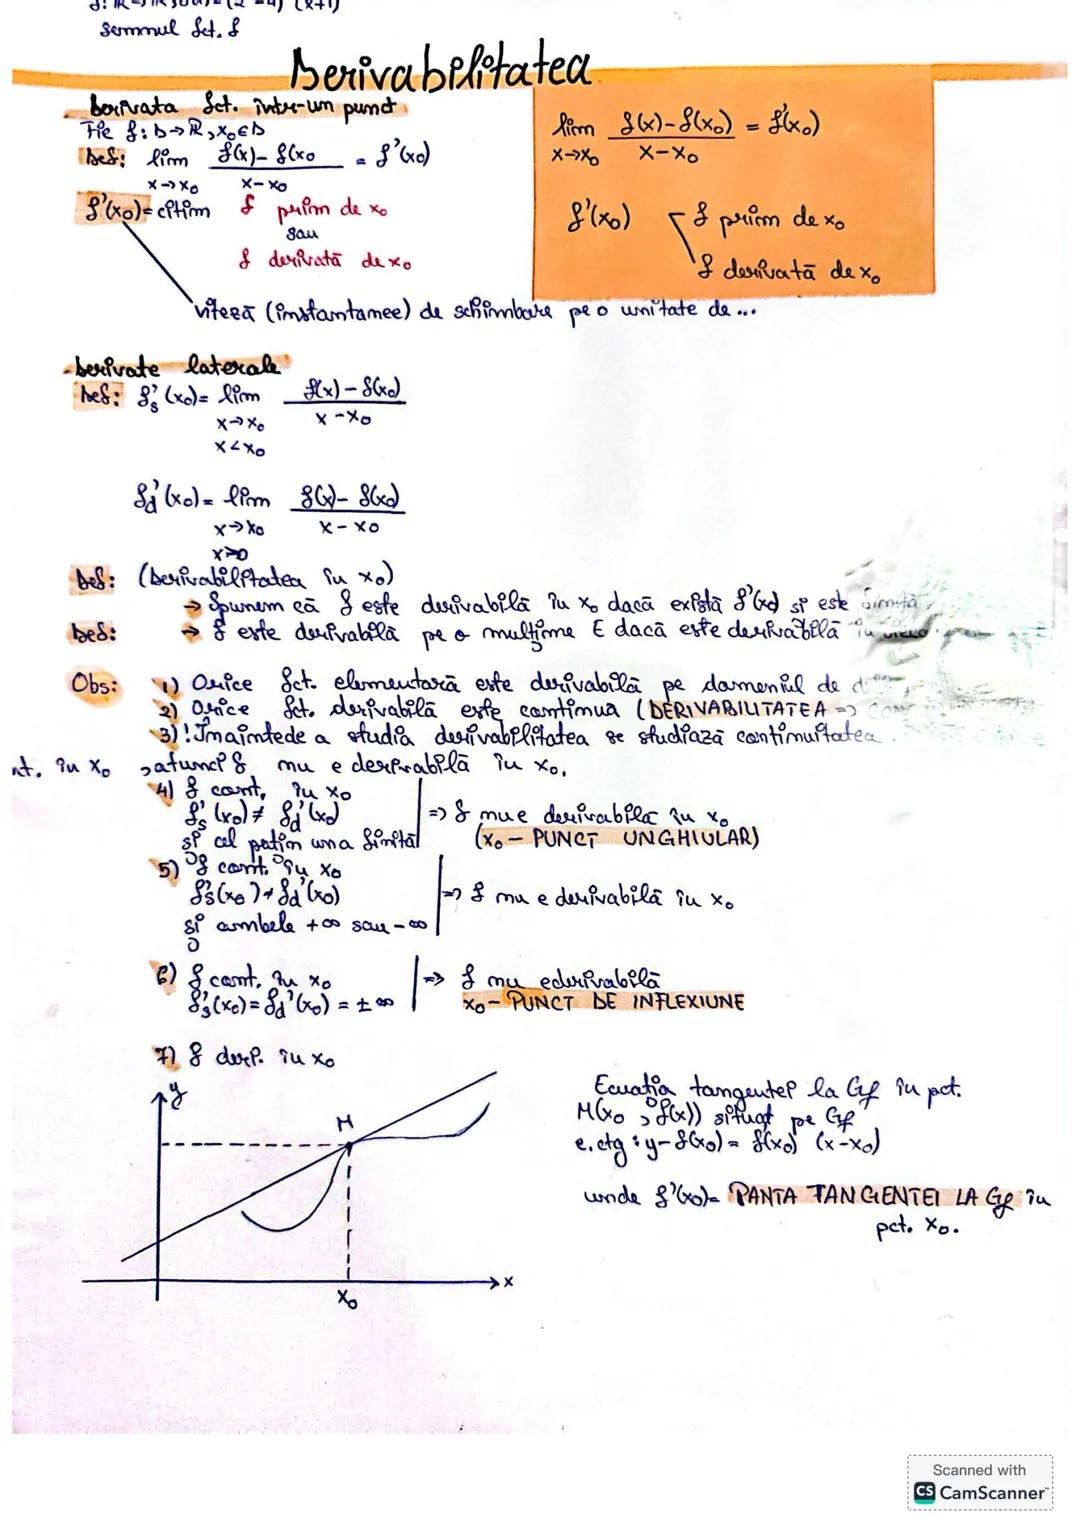 semnul fct. f
Derivabilitatea
Derivata fct. într-un punct
Fie f: D→R, x₀∈D
Def: lim f(x)-f(x₀ / x-x₀ = f'(x₀)
x→x₀
f'(x₀)= citim f prim de x₀
sau
f derivată de x₀
lim f(x)-f(x₀) / x-x₀ = f'(x₀)
x→x₀
f'(x₀) f prim de x₀
f derivată de x₀
viteză (instantanee) de schimbare pe o unitate de ...
Derivate laterale
Def: f's (x₀)= lim f(x)-f(x₀) / x-x₀
x→x₀
x<x₀
f'd (x₀)= lim f(x)-f(x₀) / x-x₀
x→x₀
x>0
Def: (Derivabilitatea în x₀)
→ Spunem că f este derivabilă în x₀ dacă există f'(x₀) și este finită
Def: → f este derivabilă pe o mulțime E dacă este derivabilă în
Obs: 1) Orice fct. elementară este derivabilă pe domeniul de
2) Orice fct. derivabilă este continua (DERIVABILITATEA =>
3) ! Înaintede a studia derivabilitatea se studiază continuitatea
nt. în x₀, atunci f nu e derivabilă în x₀.
4) f cont. în x₀
f's (x₀) ≠ f'd (x₀) => f nu e derivabilă în x₀
și cel puțin una finită (x₀ - PUNCT UNGHIULAR)
5) f cont. în x₀
f's (x₀) ≠ f'd (x₀) => f nu e derivabilă în x₀
și ambele +∞ sau -∞
6) f cont. în x₀ => f nu ederivabilă
f's (x₀) = f'd (x₀) = ±∞ x₀ - PUNCT DE INFLEXIUNE
7) f deri. în x₀
y
M
x
x₀
Ecuația tangentei la Gf în pct.
M(x₀, f(x)) situat pe Gf
e.ctg : y-f(x₀) = f(x₀) (x-x₀)
unde f'(x₀)= PANTA TANGENTEI LA Gf în
pct. x₀.
Scanned with
CS CamScanner